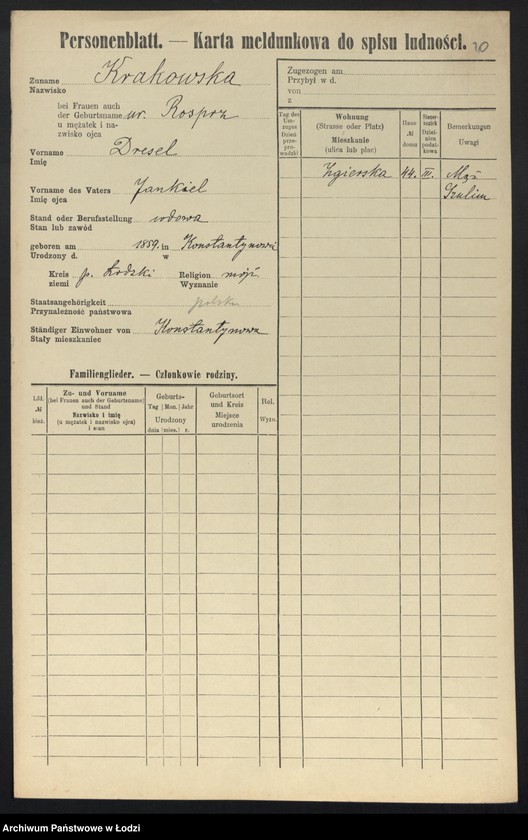 Personenblatt. — Karta meldunkowa do spisu ludności. 20
Zuname Krakowska
Nazwisko
bei Frauen auch
der Geburtsname ur. Rosprz
u mężatek i na-
zwisko ojca
Vorname Dresel
Imię
Vorname des Vaters Jankiel
Imię ojca
Stand oder Berufsstellung wdowa
Stan lub zawód
geboren am 1859. in Konstantynowie
Urodzony d. w
Kreis p. Łodzki Religion mojż
ziemi Wyznanie
Staatsangehörigkeit polska
Przynależność państwowa
Ständiger Einwohner von Konstantynowa
Stały mieszkaniec
Zugezogen am
Przybył w d.
von
z
Tag des Um-zuges
Dzień prze-prowadzki
Wohnung
(Strasse oder Platz)
Mieszkanie
(ulica lub plac)
Haus
№
domu
Steuer-
Dziel-nica podat-kowa
Bemerkungen
Uwagi
Zgierska 44. III. Mąż
Szulim
Familienglieder. — Członkowie rodziny.
Lfd.
№
bież.
Zu- und Vorname
(bei Frauen auch der Geburtsname)
und Stand
Nazwisko i imię
(u mężatek i nazwisko ojca)
i stan
Geburts-
Tag | Mon. | Jahr
Urodzony
dnia | mies. | r.
Geburtsort
und Kreis
Miejsce
urodzenia
Rel.
Wyzn.
Archiwum Państwowe w Łodzi